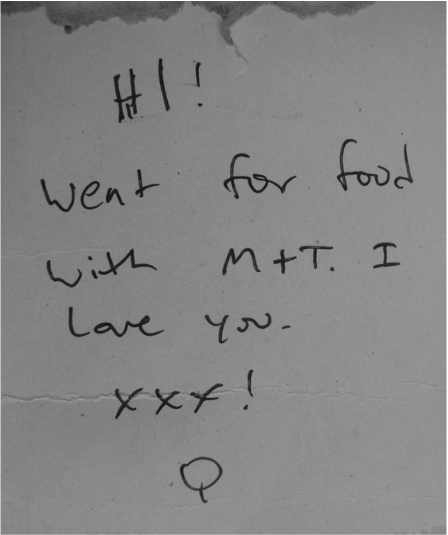 HI!
Went for food
with M+T. I
Love you.
xxx!
Q